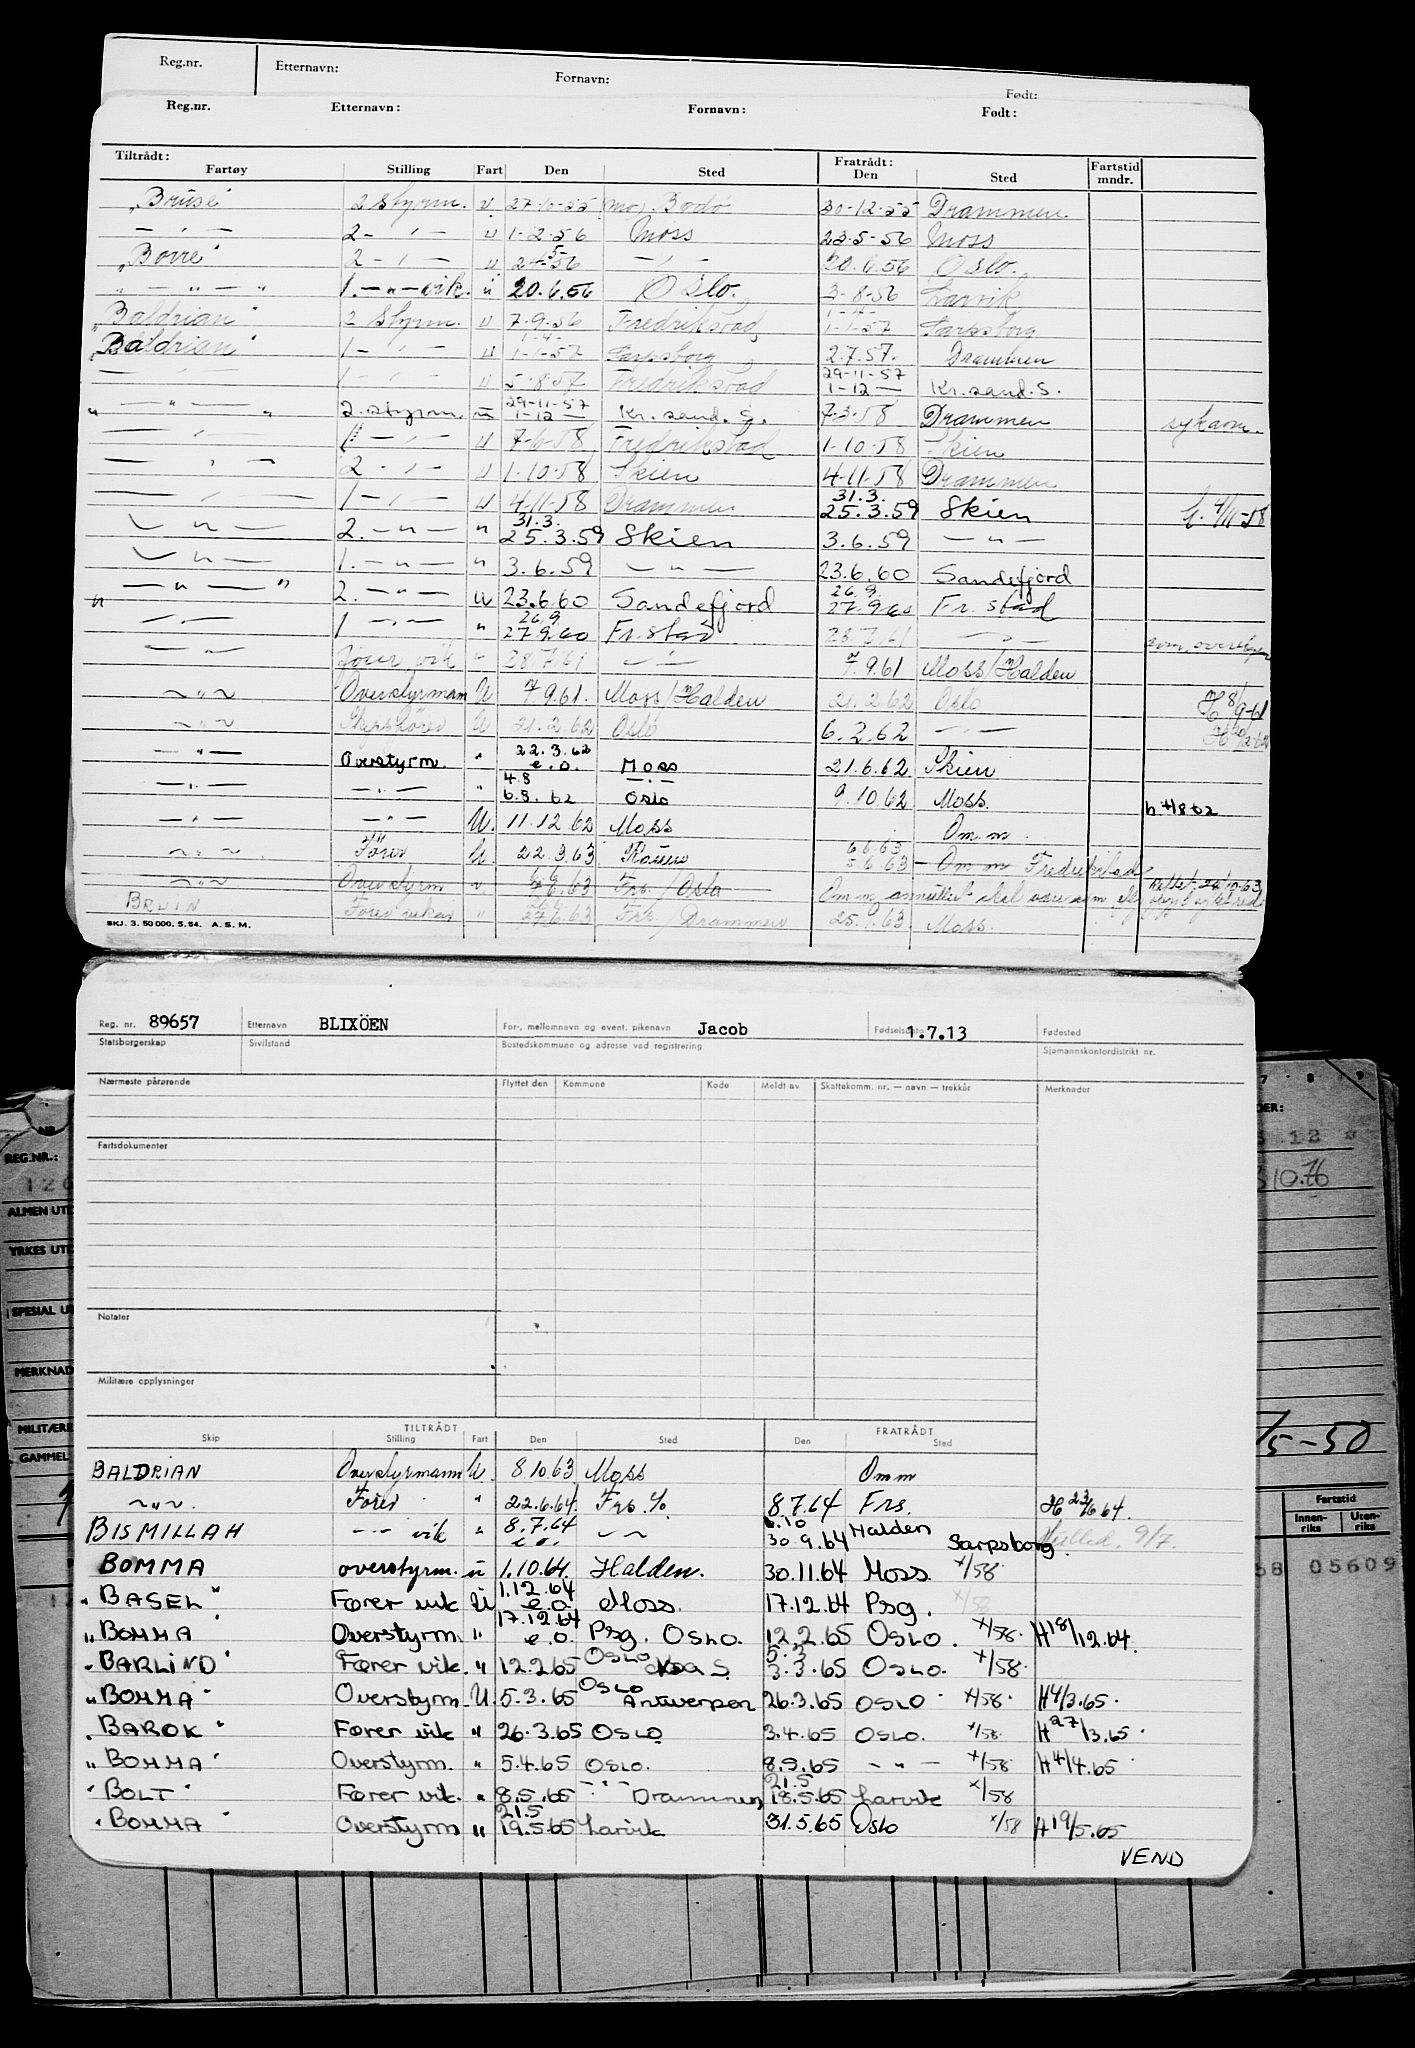 Reg.nr. Etternavn: Fornavn: Født:
Reg.nr. Etternavn: Fornavn: Født:
Tiltrådt: Fratrådt: Fartstid
Fartøy Stilling Fart Den Sted Den Sted mndr.
"Bruse" 2 styrm. u 27-10-55 Bodø 30-12-55 Drammen
— " — 2 - " - u 1-2-56 Moss 23-5-56 Moss
"Borre" 2 - " - u 24-5-56 - " - 20.6.56 Oslo.
" — " — " 1. - " - vik. u 20.6.56 Oslo. 3-8-56 Larvik
"Baldrian" 2 styrm. u 7-9-56 Fredrikstad 1-4- 1-1-57 Sarpsborg
"Baldrian" 1 - " - u 1-4- 1-1-57 Sarpsborg 2.7.57. Drammen
— " — 1 - " - u 5-8-57 Fredrikstad 29-11-57 1-12 — Kr.sand.S.
" — " — " 2. styrm. u 29-11-57 1-12 — Kr.sand.S. 7-3-58 Drammen
— " — 1 - " - u 7-6-58 Fredrikstad 1-10-58 Skien
— " — 2 - " - u 1-10-58 Skien 4-11-58 Drammen
— " — 1 - " - u 4-11-58 Drammen 31.3. 25.3.59 Skien h. 4/11-58
— " — 2. - " - " 31.3. 25.3.59 Skien 3.6.59 — " —
— " — 1. - " - " 3.6.59 — " — 23.6.60 Sandefjord
" — " — " 2. - " - u 23.6.60 Sandefjord 26.9. 27.9.60 Fr.stad
— " — 1 - " - " 26.9 27.9.60 Fr.stad 28.7.61 — " —
— " — Fører vik " 28.7.61 — " — 7.9.61 Moss/Halden
— " — Overstyrmann U 7.9.61. Moss/Halden 21.2.62 Oslo H 8/9-61
— " — Skipsfører U 21.2.62 Oslo 6.2.62 — " —
— " — Overstyrm. " 22.3.62 e.o. Moss 21.6.62 Skien
— " — — " — " 4.8 6.8.62 — " — Oslo 9.10.62 Moss. h. 4/8 62
— " — — " — U. 11.12.62 Moss Om.m.
— " — Fører U. 22.3.63 6.6.63 5.6.63 — Om m Fredrikstad
— " — Overstyrm u. 6.63 Frs./Oslo Om m annullert skal være som
BRUIN Fører vikar " 6.63 Frs/Drammen 25.9.63 Moss.
SKJ. 3. 50 000. 5. 54. A. S. M.
Reg. nr. 89657 Etternavn BLIXÖEN For-, mellomnavn og event. pikenavn Jacob Fødselsdato 1.7.13 Fødested
Statsborgerskap Sivilstand Bostedskommune og adresse ved registrering Sjømannskontordistrikt nr.
Nærmeste pårørende Flyttet den Kommune Kode Meldt av Skattekomm. nr. — navn — trekkår Merknader
Fartsdokumenter
Notater
Militære opplysninger
TILTRÅDT FRATRÅDT
Skip Stilling Fart Den Sted Den Sted
BALDRIAN Overstyrmann U. 8.10.63 Moss Om m
— " —. Fører " 22.6.64. Frs. 8.7.64 Frs. H 23/6 64
BISMILLAH - " - vik " 8.7.64 e.o. — " — 6.10 30.9.64 Halden Sarpsborg. 9/7.
BOMMA overstyrm. u 1.10.64. Halden. 30.11.64 Moss x/58
"BASEL" Fører vik U 1.12.64 e.o. Moss. 17.12.64 Psg. x/58
"BOMMA" Overstyrm. " 17.12.64 e.o. Psg. OSLO. 12.2.65 OSLO. x/58. H 18/12.64.
"BARLIND" Fører vik. " 12.2.65 OSLO 5.3 3.3.65 OSLO. x/58.
"BOMMA" Overstyrm. U. 5.3.65 OSLO Antwerpen 26.3.65 OSLO x/58. H 4/3.65.
"BAROK" Fører vik " 26.3.65 OSLO 3.4.65 OSLO. x/58. H 27/3.65.
"BOMMA" Overstyrm. " 5.4.65 OSLO. 8.5.65 — " — x/58. H 4/4.65
"BOLT" Fører vik. " 8.5.65 - " - Drammen 21.5 18.5.65 Larvik x/58
"BOMMA" Overstyrm " 21.5 19.5.65 Larvik 31.5.65 Oslo x/58 H 19/5.65
VEND
REG.NR.:
ALMEN UTD
YRKES UTD
SPECIAL UT
MERKNAD
MILITÆRE
GAMMEL
7 8 9
/5-50
Fartstid
Innen-riks Uten-riks
58 05609